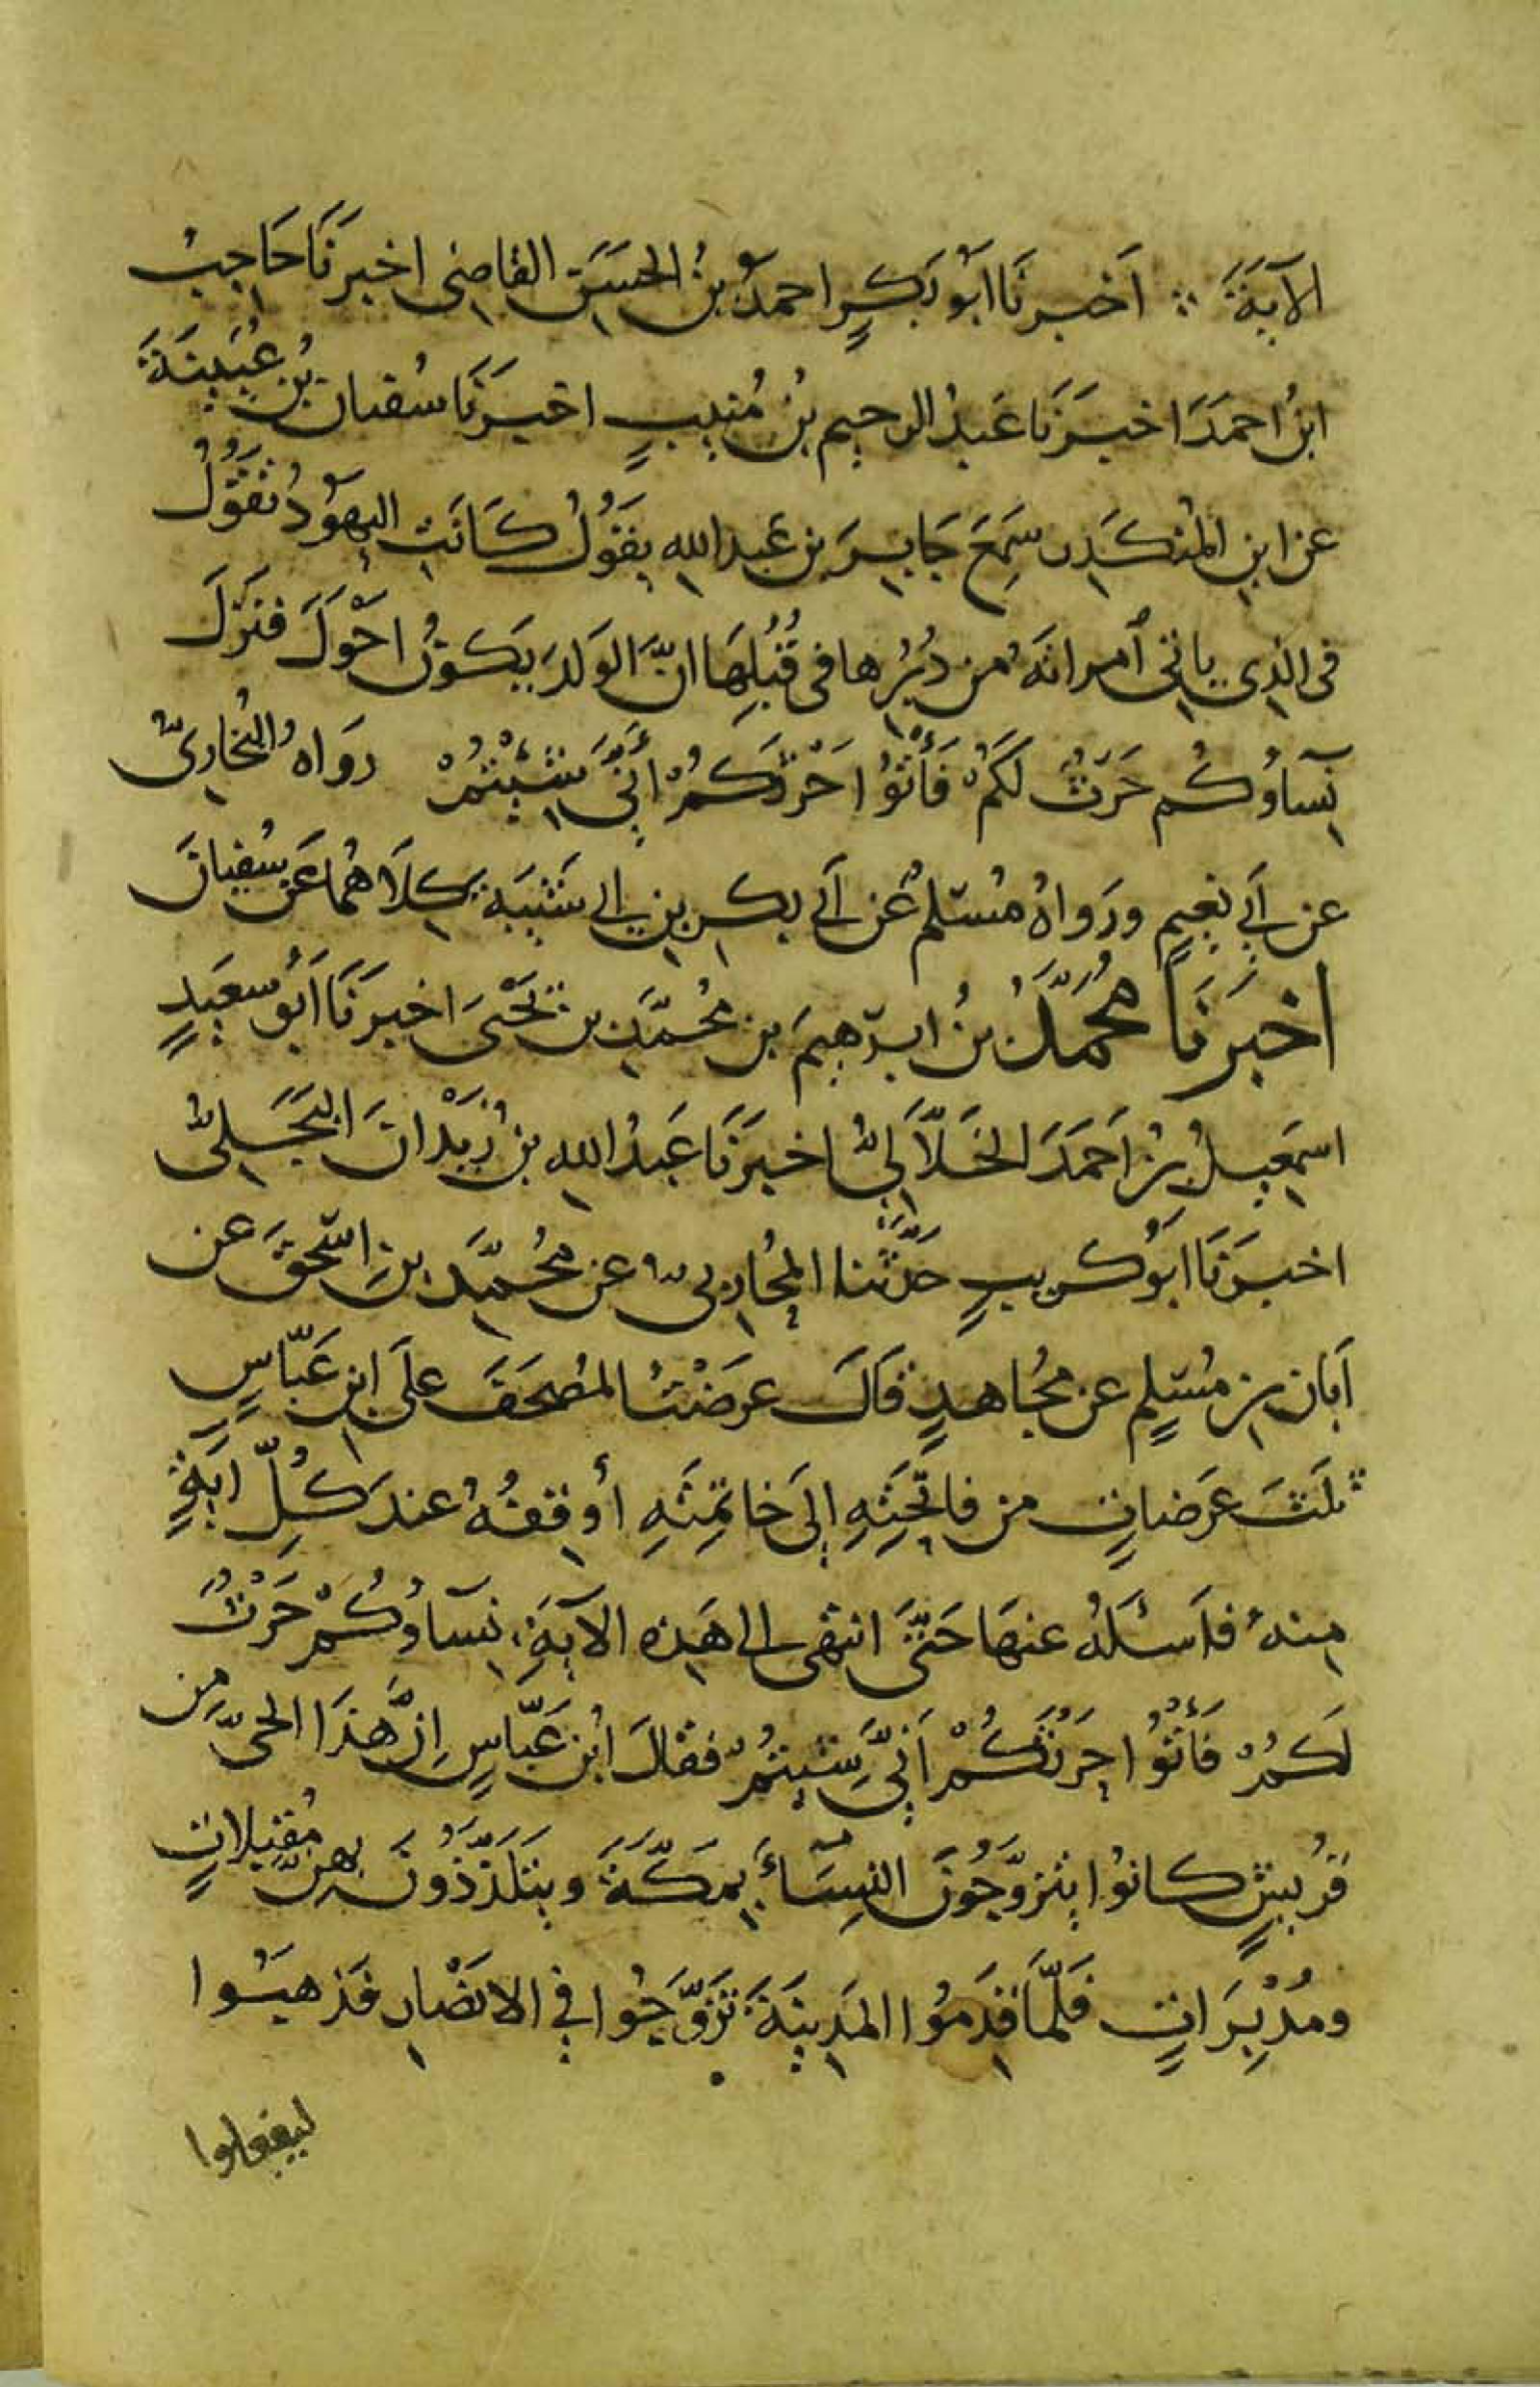 الآيَةَ ∴ اَخبرنَا ابَوُ بَكرٍ احمدُ بنُ الحسَن القاضى اخبرنَا حَاجِبُ
ابنُ احمَدَ اخبرَنَا عَبدُ الرحيم بنُ مُنيبٍ اخبرَنَا سُفيان بنُ عُيَينَةَ
عن ابنِ المُنكَدِر سَمِعَ جَابِرَ بن عَبدِ الله يقَوُلُ كَانَتِ اليهَوُدُ تقَوُلُ
فى الذِى يَاتِى امراتَهُ من دُبُرِها فى قُبُلِهَا انَّ الوَلدَ يَكوُنُ احْوَلَ فنَزَلَ
نِسَاؤُكُم حَرثٌ لَكُمْ فَأْتُوُا حَرْثَكُمْ أَنَّى شِئْتُمْ رَوَاهُ البُخارِىُّ
عن اَبى نعيمٍ ورَواهُ مُسْلم عَن اَبى بكرِ بنِ ابى شَيْبَةَ كِلَاهُمَا عَن سُفيانَ
اخبَرَنَا مُحمَّدُ بنُ ابرهيمَ بن مُحمَّدِ بن يَحْيَى اخبرَنَا اَبُو سَعيدٍ
اسمَعِيلُ بنُ اَحمَدَ الخَلَّالىُّ اخبرَنَا عَبدُ الله بنُ زَيْدَانَ البَجَلىُّ
اخبَرنَا ابَوُ كريبٍ حَدَّثَنا المُحارِبىُّ عن مُحمَّدِ بنِ اسْحقَ عن
اَبَان بن مُسْلِم عن مجُاهدٍ قالَ عرَضْتُ المُصحَفَ علَى ابنِ عَبّاسٍ
ثلثَ عَرَضاتٍ من فاتحَتِهِ إلى خَاتمِتَهِ أوقِفهُ عندَ كُلِّ ايَةٍ
مِنهُ فاَسئلَهُ عنهَا حَتَّى انتَهى الى هَذِه الآيَةِ نِسَاؤُكُمْ حَرْثٌ
لَكمُ فَأْتُوُا حَرْثَكُمْ اَنَّى شِئتُمْ فقالَ ابْن عَبَّاسٍ اِنَّ هَذَا الحَىَّ من
قُريشٍ كانوُا يتزوَّجُونَ النِسَاءَ بِمَكَّةَ ويتلَذَّذُونَ بهنَّ مُقبِلاتٍ
ومُدْبِرَاتٍ فَلَمَّا قدِمُوا المَدِينَةَ تزَوَّجَوُا فى الانصْارِ فَذهبَوا
ليفعلوا